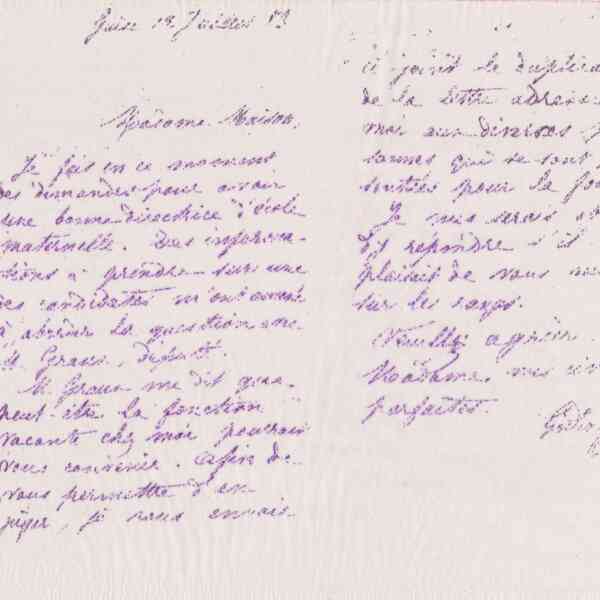 Guise 12 Juillet 83
Madame Maison,
Je fais en ce moment
des demandes pour avoir
une bonne directrice d'école
maternelle. Des informa-
tions à prendre sur une
des candidates m'ont amené
à aborder la question avec
M. Giraud, député.
M. Giraud me dit que
peut-être la fonction
vacante chez moi pourrait
vous convenir. Afin de
vous permettre d'en
juger, je vous envoie
ci-joint le duplicata
de la lettre adressée
moi aux diverses
sonnes qui se sont
sentées pour la
Je vous serais
de répondre s'il
plairait de vous
sur les rangs.
Veuillez agréer
Madame, mes
parfaites.
Godin